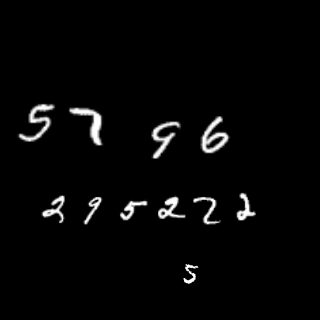 57 96
295222
5